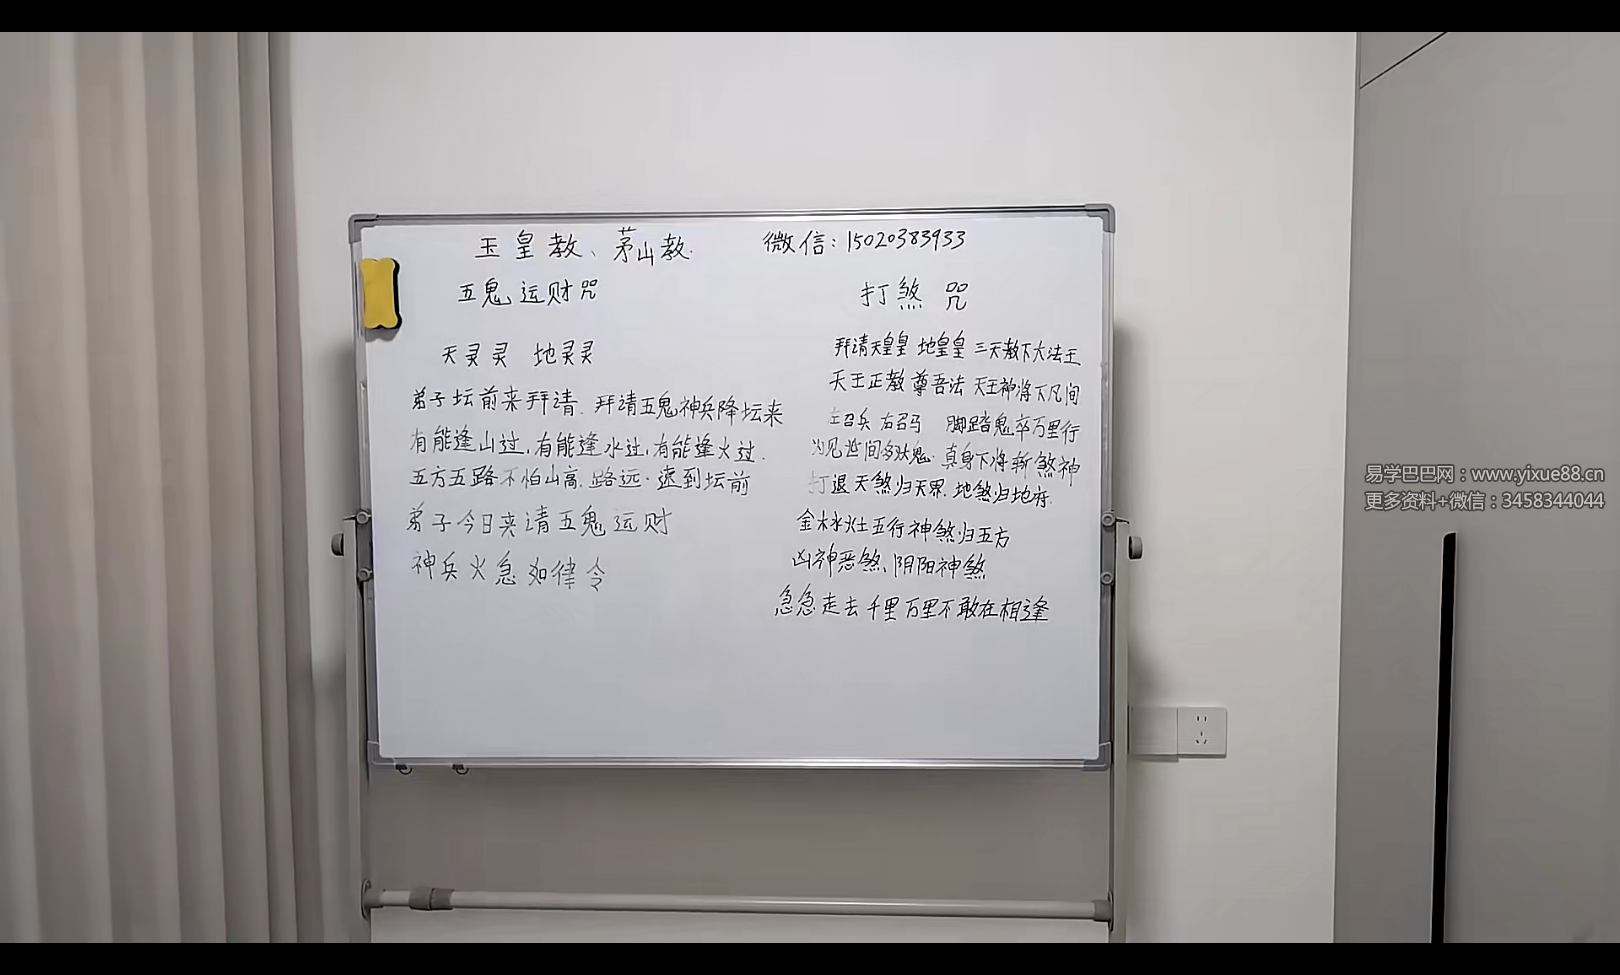 玉皇教、茅山教.
微信：15020383933
五鬼运财咒
天灵灵 地灵灵
弟子坛前来拜请．拜请五鬼神兵降坛来
有能逢山过，有能逢水过，有能逢火过．
五方五路不怕山高．路远．速到坛前
弟子今日来请五鬼运财
神兵火急如律令
打煞咒
拜请天皇皇 地皇皇 三天教下大法王
天王正教尊吾法 天王神将下凡间
左召兵 右召马 脚踏鬼卒万里行
为见世间多状鬼．真身下将斩煞神
打退天煞归天界．地煞归地府．
金木水火土五行神煞归五方
凶神恶煞、阴阳神煞
急急走去千里万里不敢在相逢
易学巴巴网：www.yixue88.cn
更多资料+微信：3458344044